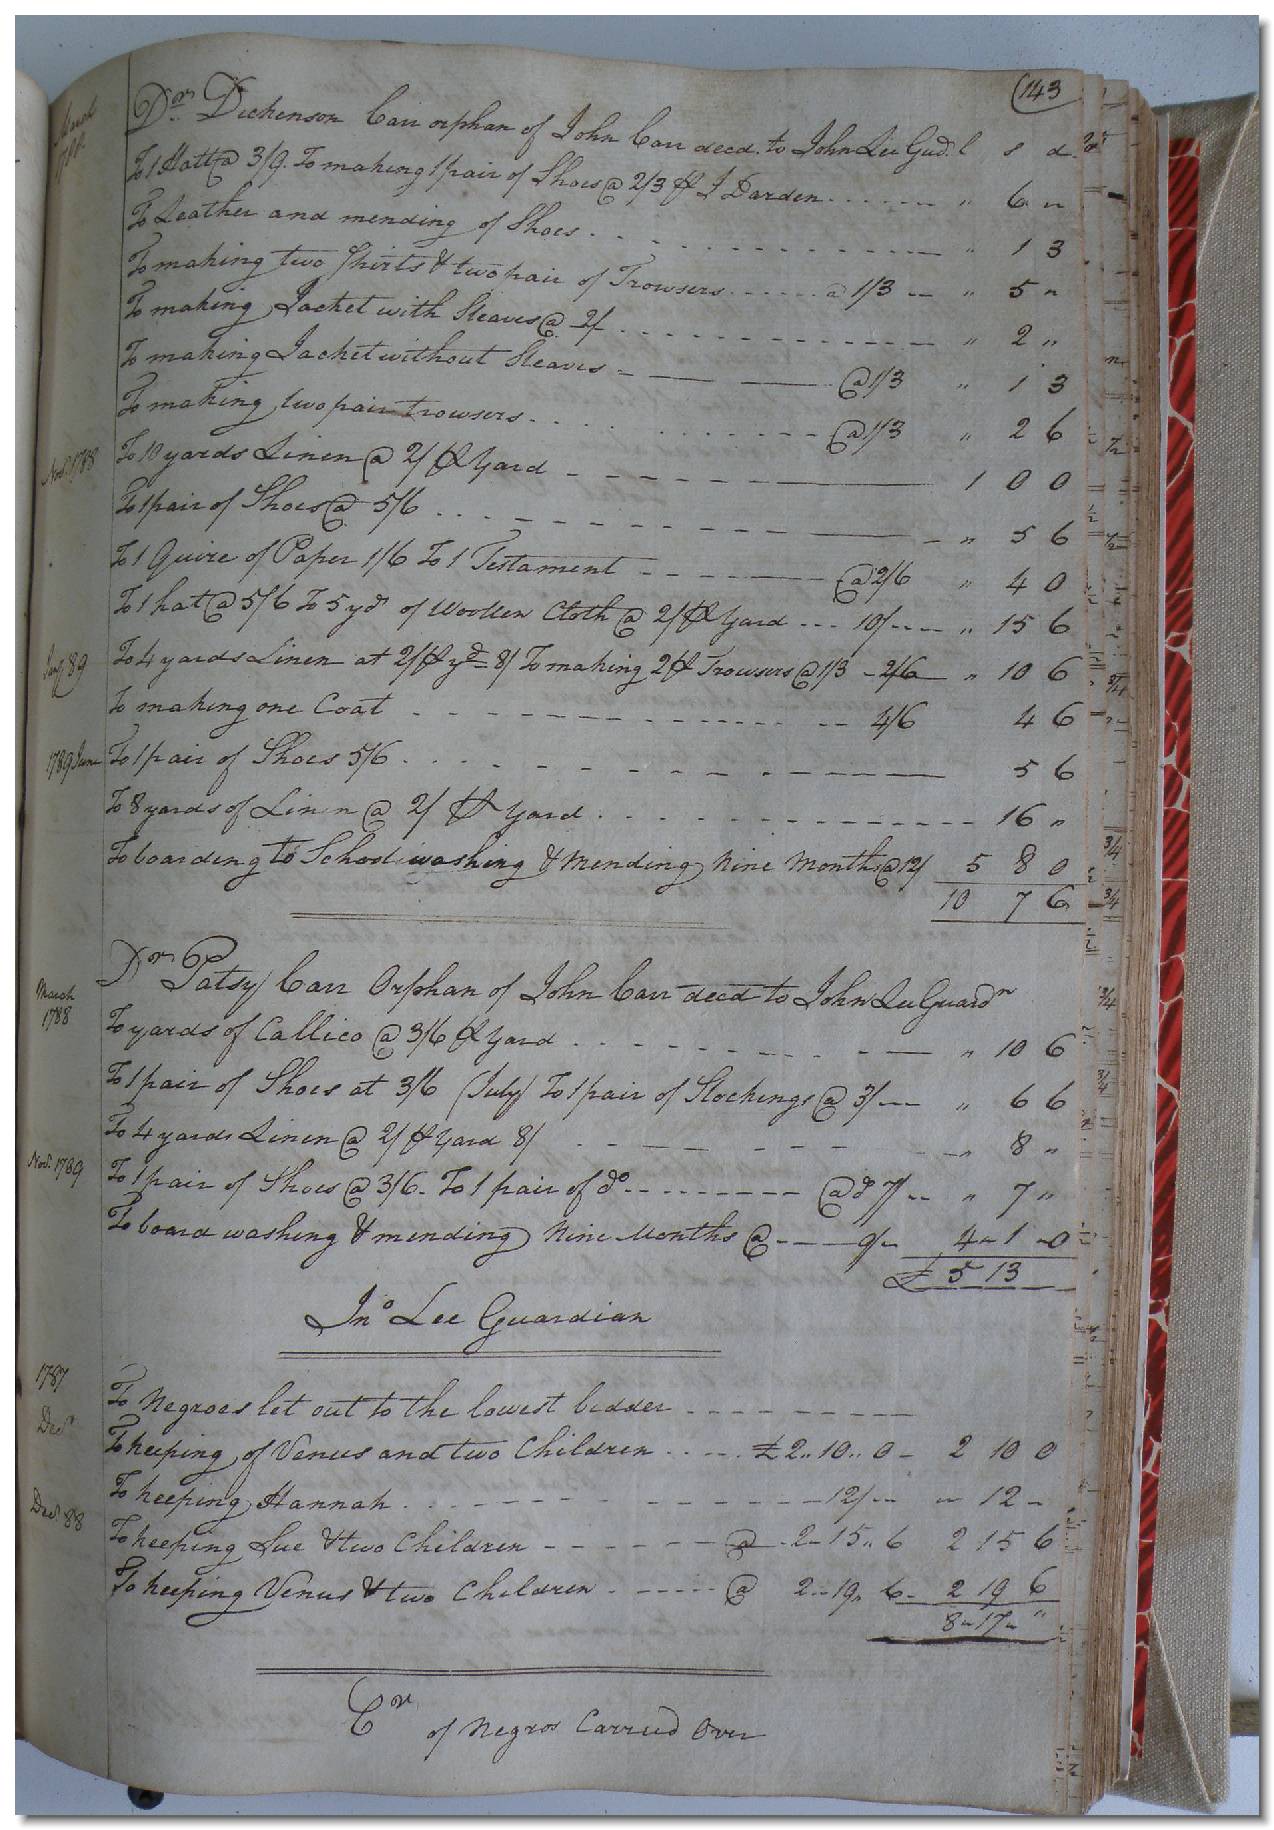 (143
March 1788
Dr. Dickenson Carr orphan of John Carr decd. to John Lee Gud. l s d
To 1 Hatt @ 3/9. To making 1 pair of Shoes @ 2/3 ⅌ J Darden ....... " 6 "
To Leather and mending of Shoes ........ " 1 3
To making two Shirts & two pair of Trowsers ..... @ 1/3 -- " 5 "
To making Jacket with Sleaves @ 2/ ........ " 2 "
To making Jacket without Sleaves - — — @ 1/3 " 1 3
To making two pair trowsers ........ @ 1/3 " 2 6
Nov. 1788 To 10 yards Linen @ 2/ ⅌ Yard - - - — 1 0 0
To 1 pair of Shoes @ 5/6 ... - - - — " 5 6
To 1 Quire of Paper 1/6 To 1 Testament - - - — @ 2/6 " 4 0
To 1 hat @ 5/6 To 5 yds of Woollen Cloth @ 2/ ⅌ Yard ... 10/ ---- " 15 6
89 To 4 yards Linen at 2/ ⅌ yd = 8/ To making 2 ⅌ Trowsers @ 1/3 - 2/6 " 10 6
To making one Coat ........ 4/6 4 6
1789 June To 1 pair of Shoes 5/6 ........ 5 6
To 8 yards of Linin @ 2/ ⅌ Yard ........ 16 "
To boarding to School washing & Mending Nine Months @ 12/ 5 8 0
10 7 6
Dr Patsy Carr Orphan of John Carr decd to John Lee Guardn
March 1788
To yards of Callico @ 3/6 ⅌ Yard ........ " 10 6
To 1 pair of Shoes at 3/6 (July) To 1 pair of Stockings @ 3/ -- " 6 6
To 4 yards Linen @ 2/ ⅌ Yard 8/ ........ " 8 "
Nov. 1789 To 1 pair of Shoes @ 3/6. To 1 pair of do ........ @ do 7/ -- " 7 "
To board washing & mending Nine Months @ ---- 9/- 4 " 1 " 0
£ 5 13
Jno Lee Guardian
1787
Decr
To Negroes let out to the lowest bidder ........
To keeping of Venus and two Children .... £ 2 " 10 " 0 - 2 10 0
To keeping Hannah ........ 12/ -- " 12 -
Decr 88 To keeping Sue & two Children ------ @ 2 - 15 " 6 2 15 6
To keeping Venus & two Children ------ @ 2 - 19 " 6 - 2 19 6
8 " 17 " "
Cr of Negros Carried Over